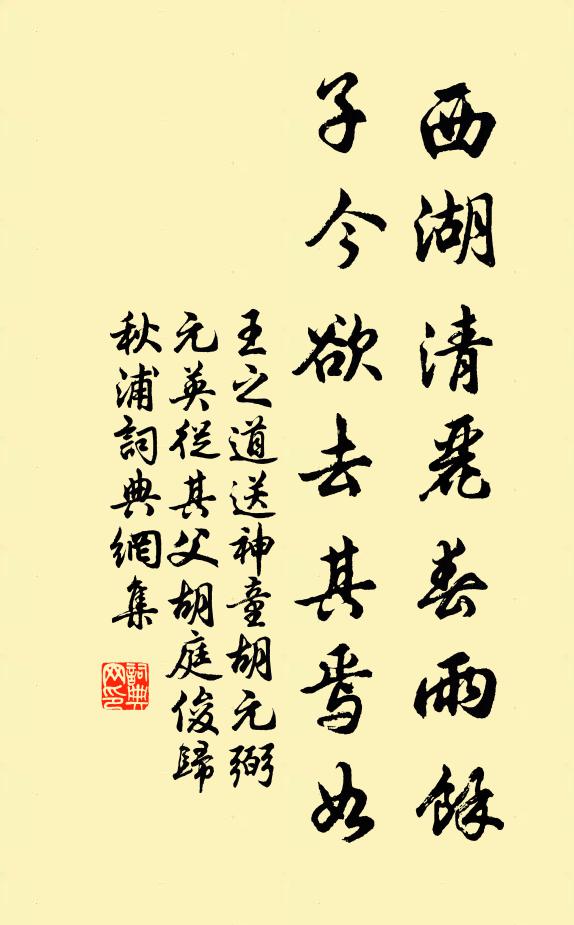 西湖清麗春雨餘
子今欲去其焉如
王之道送神童胡元弼
元英從其父胡庭俊歸
秋浦詞典網集
詞典网印